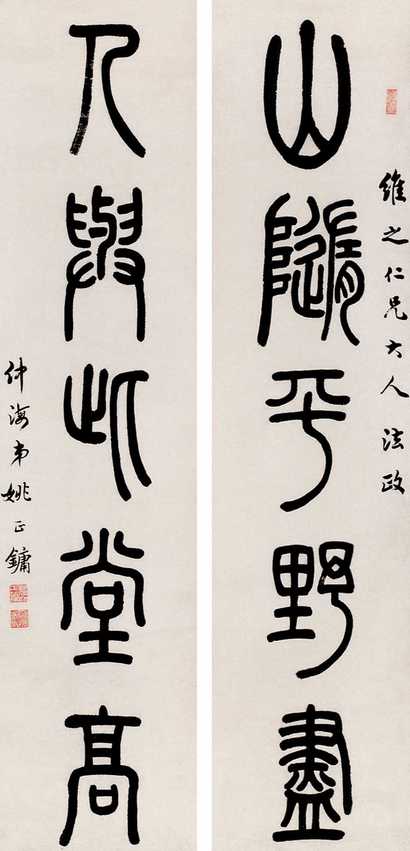 維之仁兄大人法政
山隨平野盡
人與此堂高
仲海弟姚正鏞